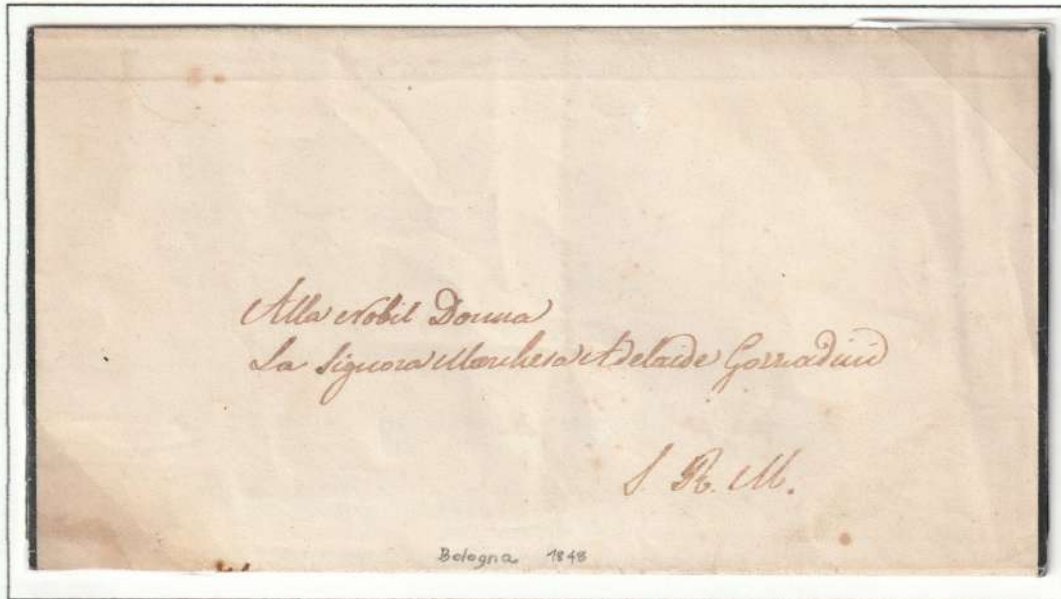 Alla Nobil Donna
La Signora Marchesa Adelaide Gozzadini
S. R. M.
Bologna 1848